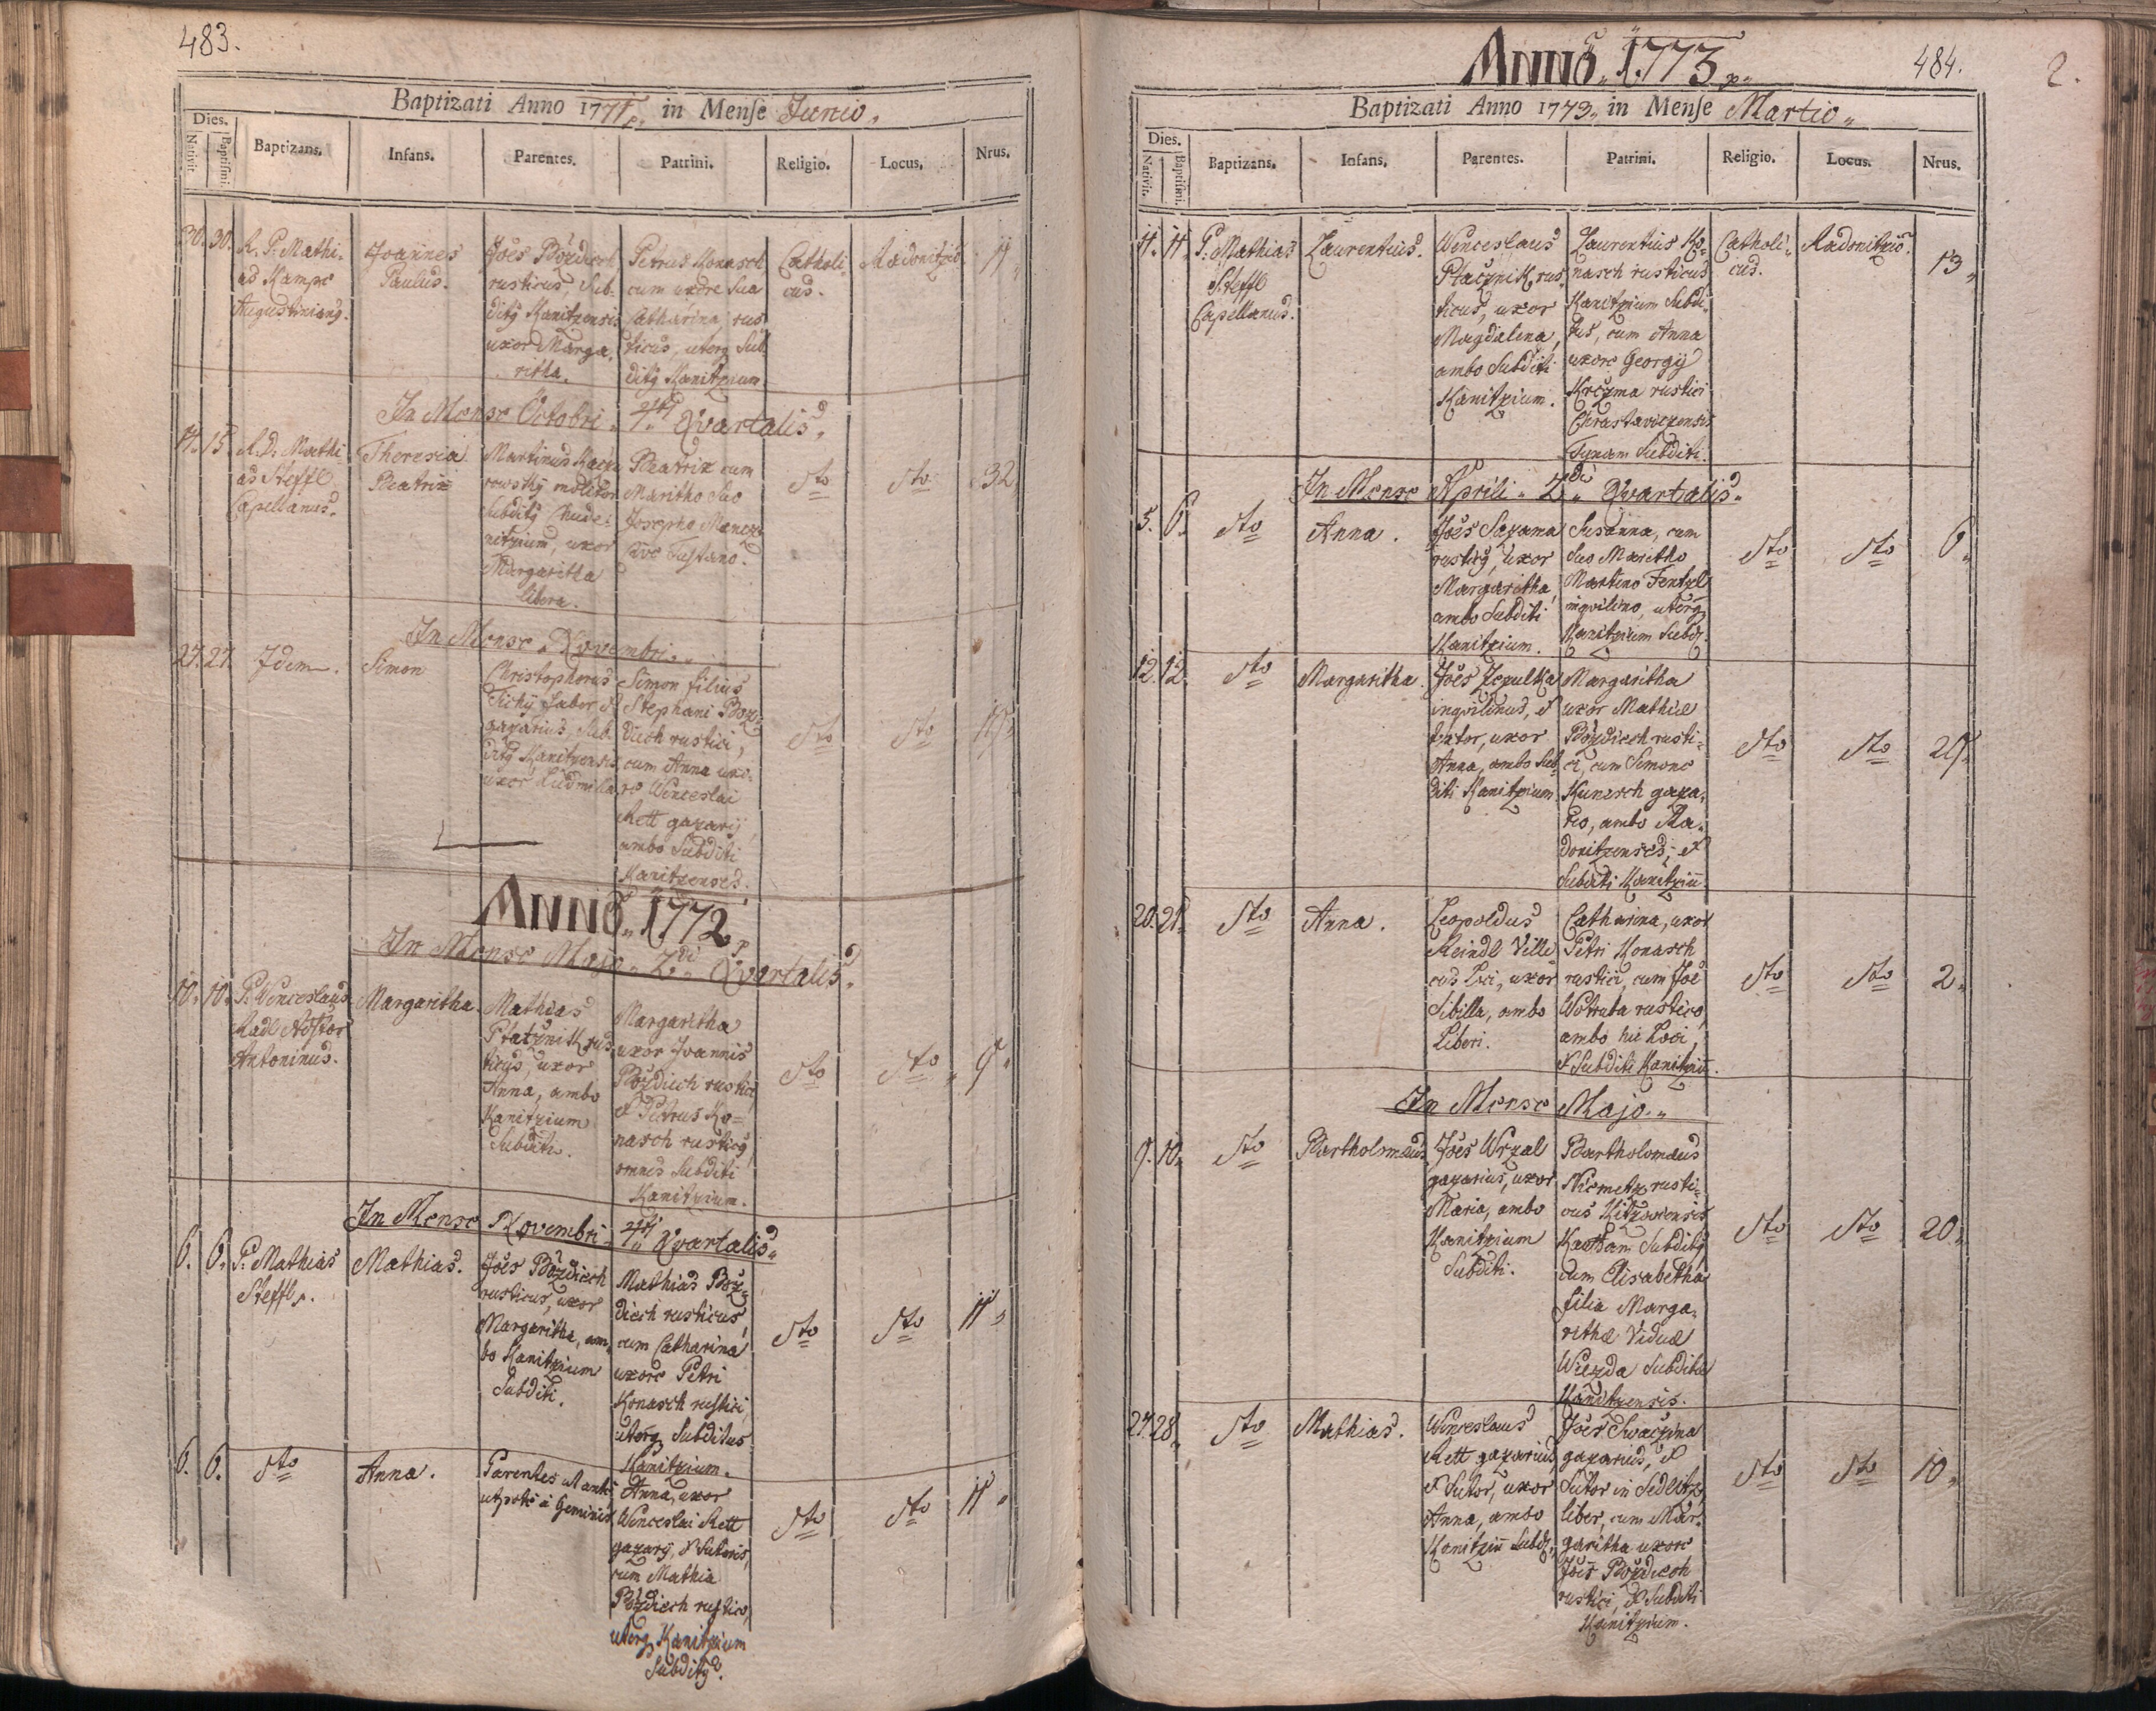 483.
Baptizati Anno 1771. in Mense Junio.
Dies.
Nativit. Baptismi. Baptizans. Infans. Parentes. Patrini. Religio. Locus. Nrus.
30. 30.
R. P. Mathi-
as Kampe
Augustinianus.
Joannes
Paulus.
Joës Bozdiech
rusticus, Sub-
ditq Kanitzensis
uxor Marga-
ritha.
Petrus Konasch
cum uxore sua
Catharina, rus-
ticus, uterq Sub-
ditq Kanitzium
Catholi-
cus.
Radonitzio
11
In Mense Octobri. 4ti Qvartalis.
15.
A. D. Mathi-
as Steffl
Capellanus.
Theresia
Beatrix
Martinus
rowsky molitor
Subditq Chude-
nitzium, uxor
Margaritha
libera.
Beatrix cum
Maritho suo
Josepho
Cive Tustano.
Sto
Sto
32
In Mense Novembri.
27. 27.
Idem.
Simon
Christophorus
Tichÿ faber &
gazarius, Sub-
ditq Kanitzensis
uxor Ludmilla
Simon filius
Stephani Boz-
diech rustici,
cum Anna uxo-
re Wenceslai
Rett gazarij
ambo Subditi
Kanitzenses.
Sto
Sto
ANNO 1772
In Mense Majo 2di Qvartalis.
10. 10.
P. Wenceslaus
Radl
Antoninus.
Margaritha
Mathias
Ptatznik rus-
ticus, uxor
Anna, ambo
Kanitzium
Subditi.
Margaritha
uxor Joannis
Bozdiech rustici
& Petrus Ko-
nasch rusticq
omnes Subditi
Kanitzium.
Sto
Sto
9
In Mense Novembri 4ti Qvartalis.
6. 6.
P. Mathias
Steffl.
Mathias.
Joës Bozdiech
rusticus, uxor
Margaritha, am-
bo Kanitzium
Subditi.
Mathias Boz-
diech rusticus,
cum Catharina
uxore Petri
Konasch rustici,
uterq Subditus
Kanitzium.
Sto
Sto
11
6. 6.
Sto
Anna.
Parentes ut ante
utpote à Geminis
Anna, uxor
Wenceslai Rett
gazarij, & Sutoris,
cum Mathia
Bozdiech rustico,
uterq Kanitzium
Subditq.
Sto
Sto
11
ANNO 1773
484.
2.
Baptizati Anno 1773 in Mense Martio
Dies.
Nativit. Baptismi. Baptizans. Infans. Parentes. Patrini. Religio. Locus. Nrus.
11. 11.
P. Mathias
Steffl
Capellanus.
Laurentius.
Wenceslaus
Ptacznik rus-
ticus, uxor
Magdalena,
ambo Subditi
Kanitzium.
Laurentius Ko-
nasch rusticus
Kanitzium Subdi-
tus, cum Anna
uxore Georgij
Krczma rustici
Chrastaviczensis
Tynam Subditi.
Catholi-
cus.
Radonitzio.
13
In Mense Aprili 2di Qvartalis.
5. 6.
Sto
Anna.
Joës Sazama
rusticq, uxor
Margaritha,
ambo Subditi
Kanitzium.
Susanna, cum
suo Maritho
Martino Fentzl
inqvilino, uterq
Kanitzium Subd.
Sto
Sto
6
12. 12.
Sto
Margaritha.
Joës Zepultka
inqvilinus, &
uxor
Anna, ambo Sub-
diti Kanitzium
Margaritha
uxor Mathiæ
Bozdiech rusti-
ci, cum Simone
Kunesch gaza-
rio, ambo Ra-
donitzenses, &
Subditi Kanitziu.
Sto
Sto
20. 21.
Sto
Anna.
Leopoldus
Meindl Villi-
cus Loci, uxor
Sibilla, ambo
Liberi.
Catharina, uxor
Petri Konasch
rustici, cum Joë
Wotruba rustico,
ambo hic Loci,
& Subditi Kanitziu.
Sto
Sto
2
In Mense Majo.
9. 10.
Sto
Bartholomæus
Joës Wrzal
gazarius, uxor
Maria, ambo
Kanitzium
Subditi.
Bartholomæus
Niemetz rusti-
cus
Subditq
cum Elisabetha
filia Marga-
rithæ Viduæ
Wiezda Subditæ
Kanitzensis.
Sto
Sto
20
27. 28.
Sto
Mathias.
Wenceslaus
Rett gazarius
& Sutor, uxor
Anna, ambo
Kanitziu Subd.
Joës Swaczina
gazarius, &
Sutor in Sedlitz,
liber, cum Mar-
garitha uxore
Jois Bozdiech
rustici, & Subditi
Kanitzium.
Sto
Sto
10